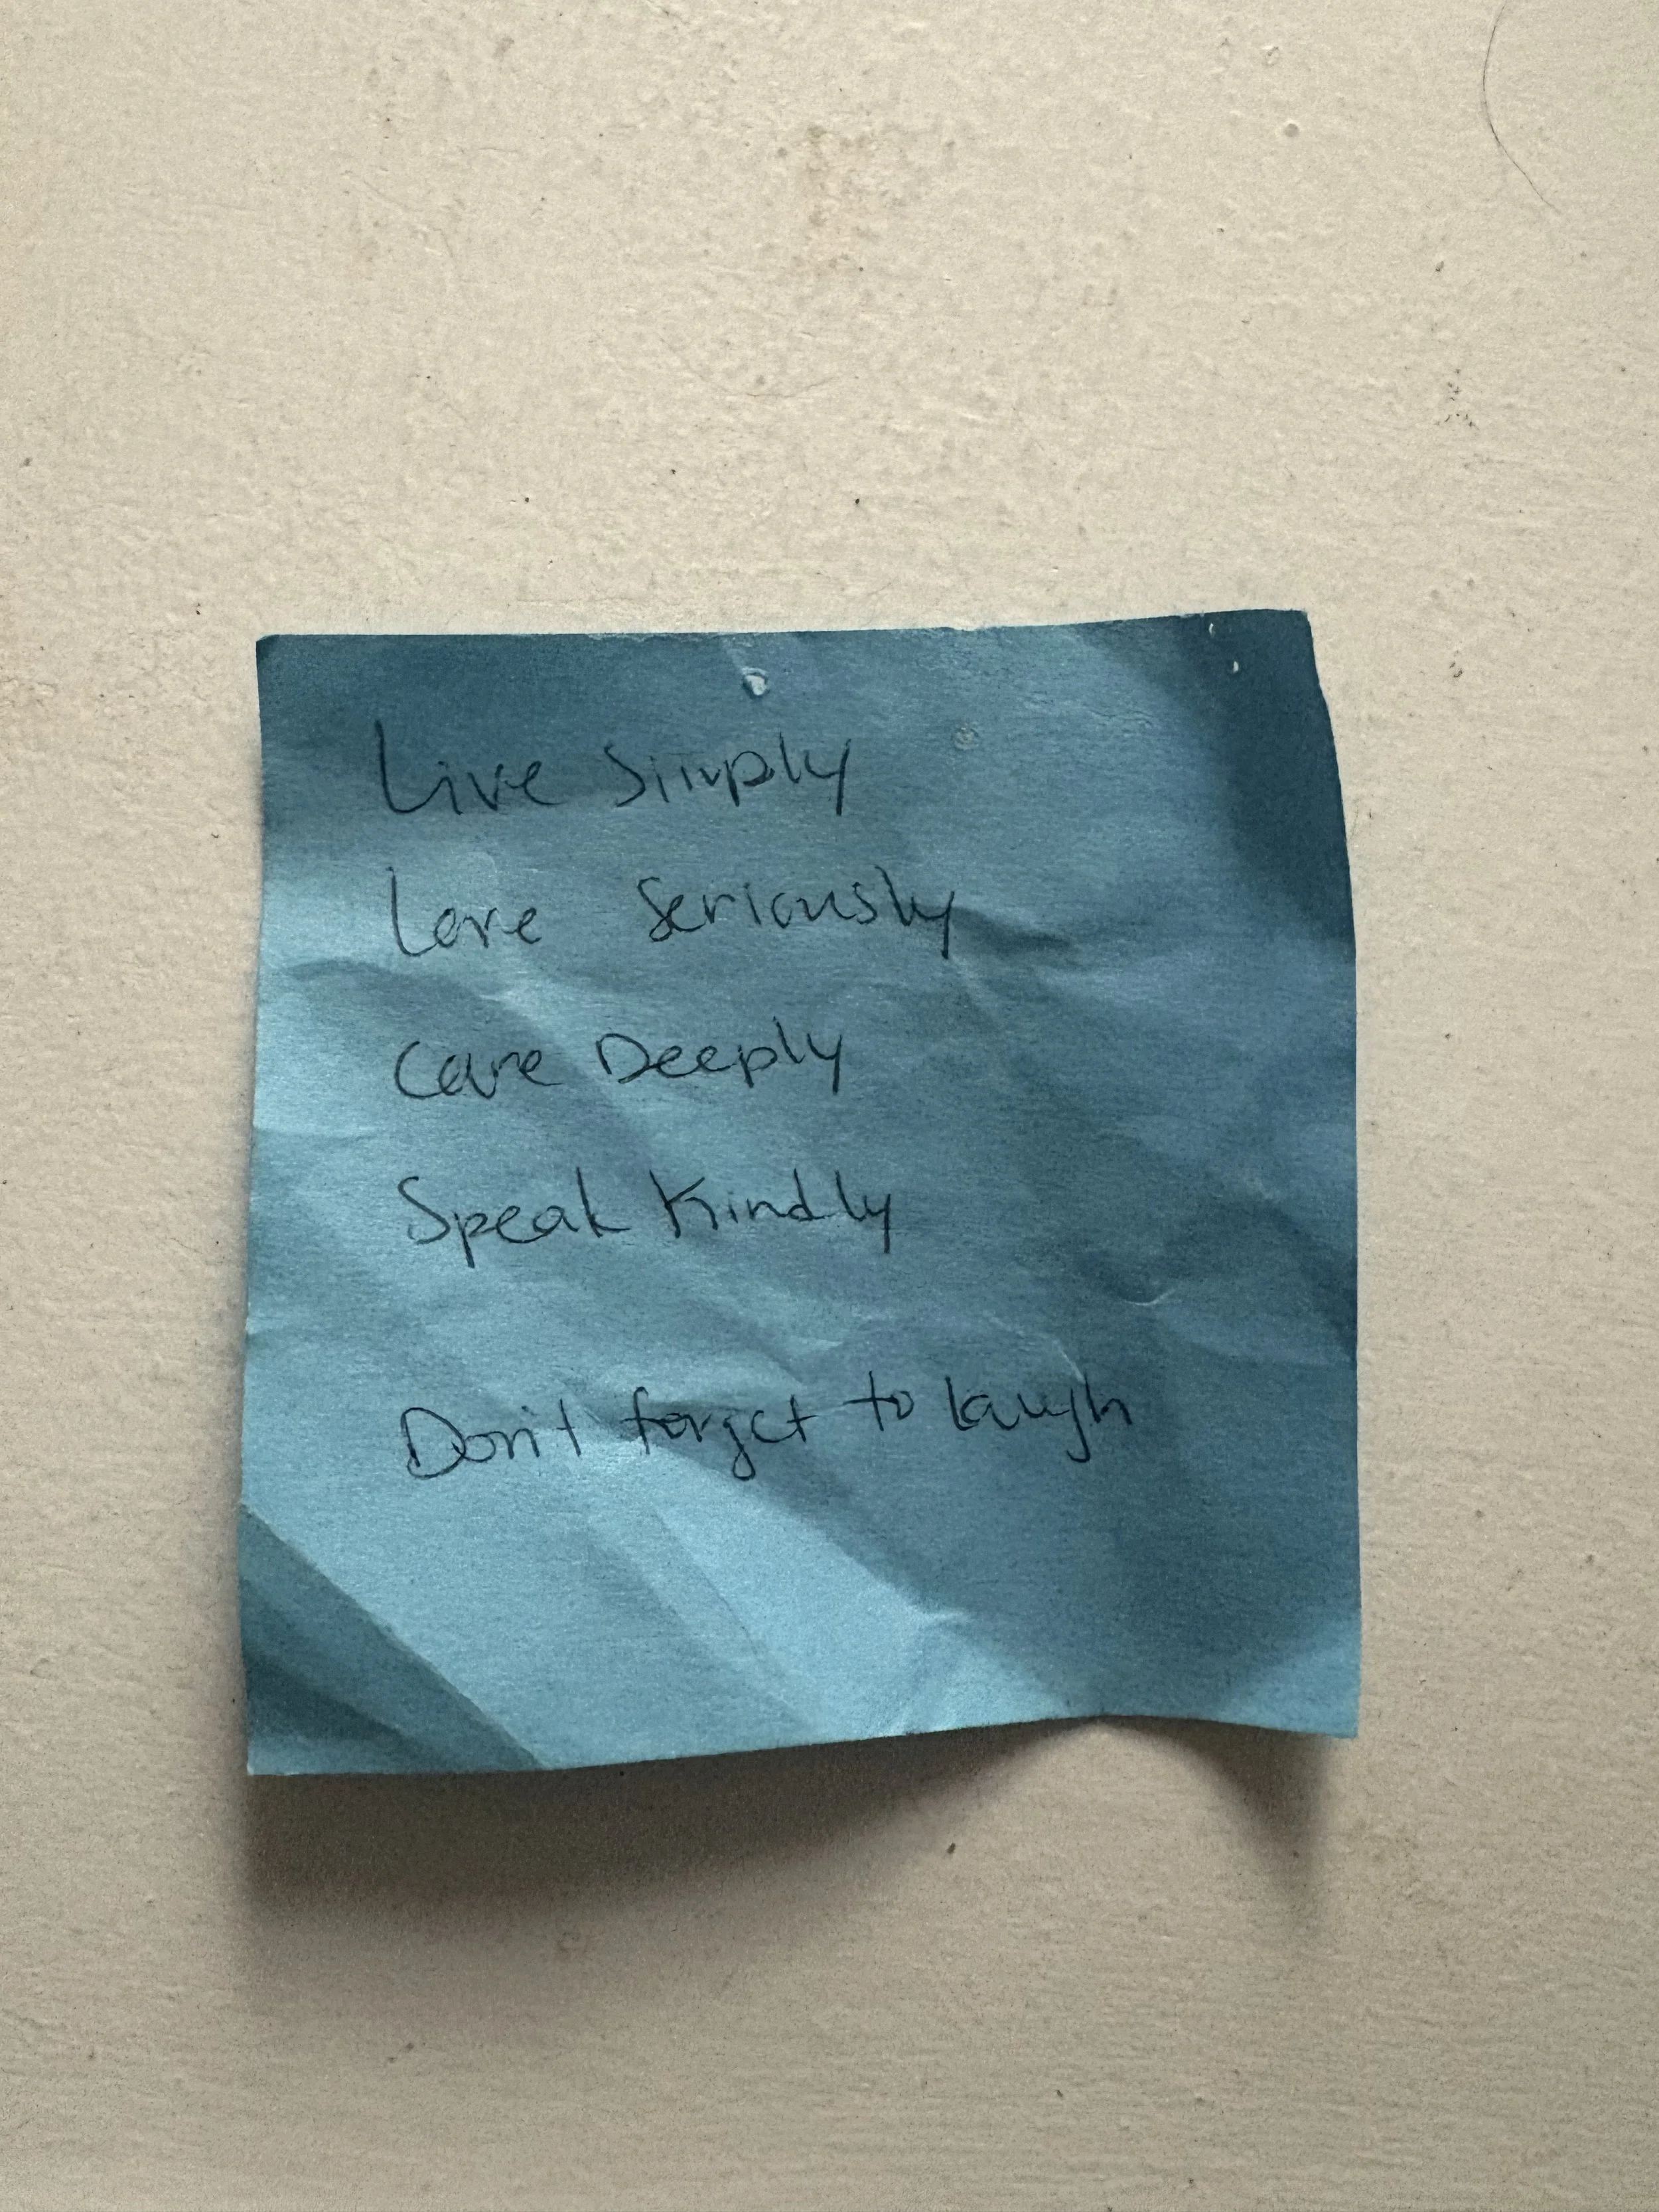 Live Simply
Love Seriously
Care Deeply
Speak Kindly
Don't forget to laugh